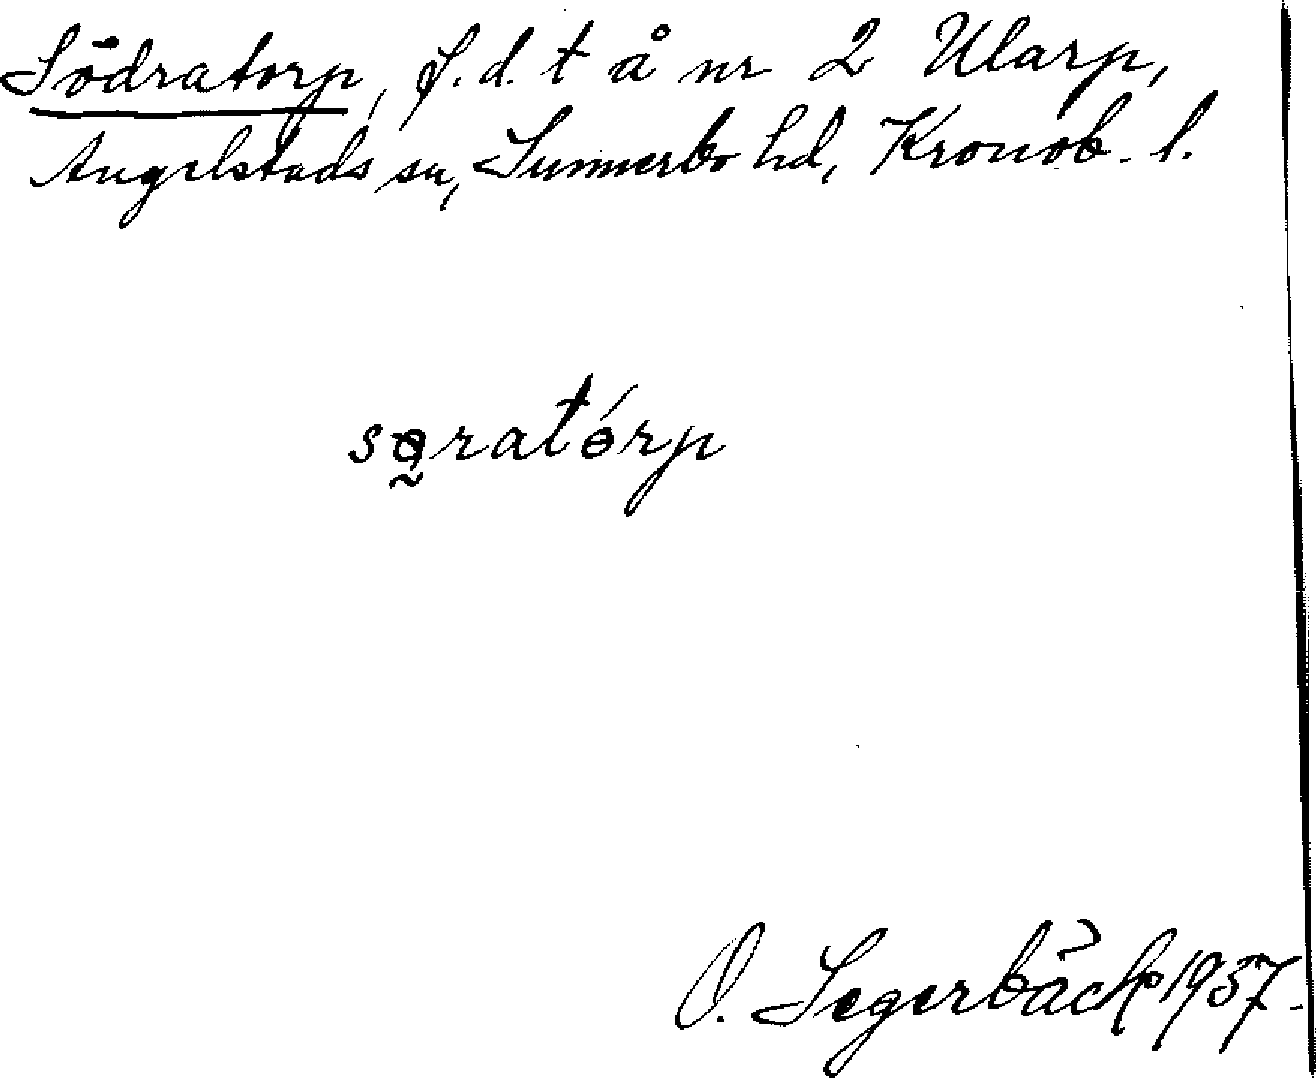 Södratorp, f.d. t å nr 2 Ularp,
Angelstads sn, Sunnerbo hd, Kronob. l.
sǫ̰ratórp
O. Segerbäck 1937.